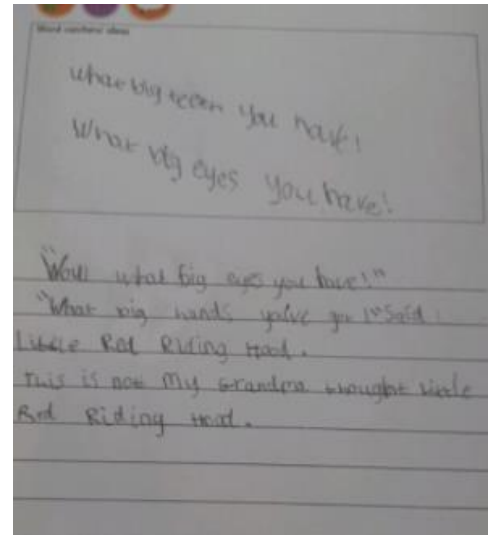 Word catchers/ideas
what big teeth you have!
What big eyes you have!
"Wow what big eyes you have!"
"What big hands you've got!" Said
Little Red Riding Hood.
This is not My Grandma thought little
Red Riding Hood.